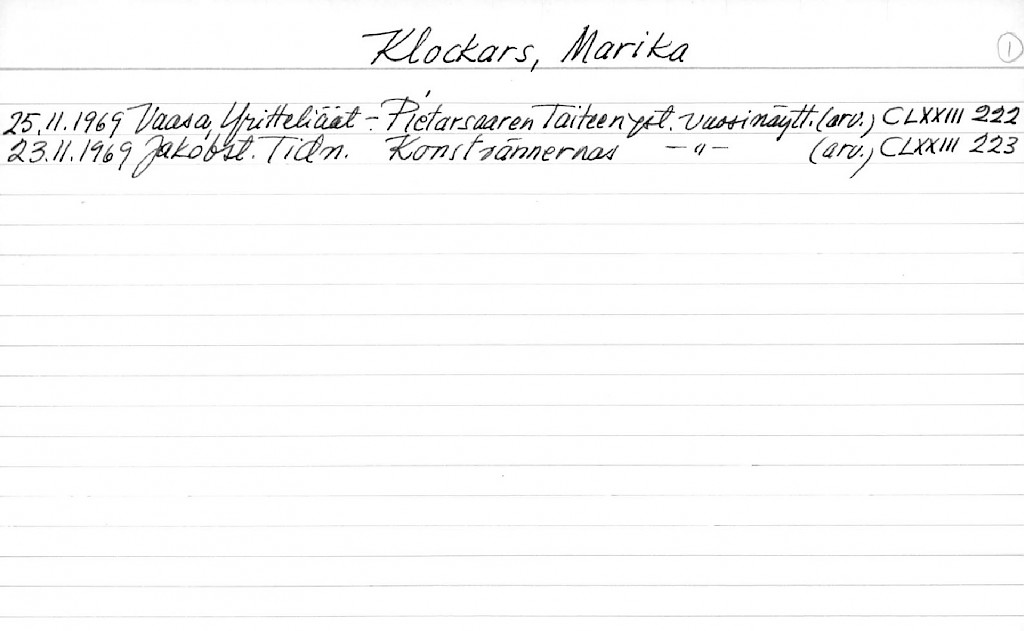 Klockars, Marika 1
25.11.1969 Vaasa, Yritteliäät - Pietarsaaren Taiteenyst. vuosinäytt. (arv.) CLXXIII 222
23.11.1969 Jakobst. Tidn. Konstvännernas -"- (arv.) CLXXIII 223